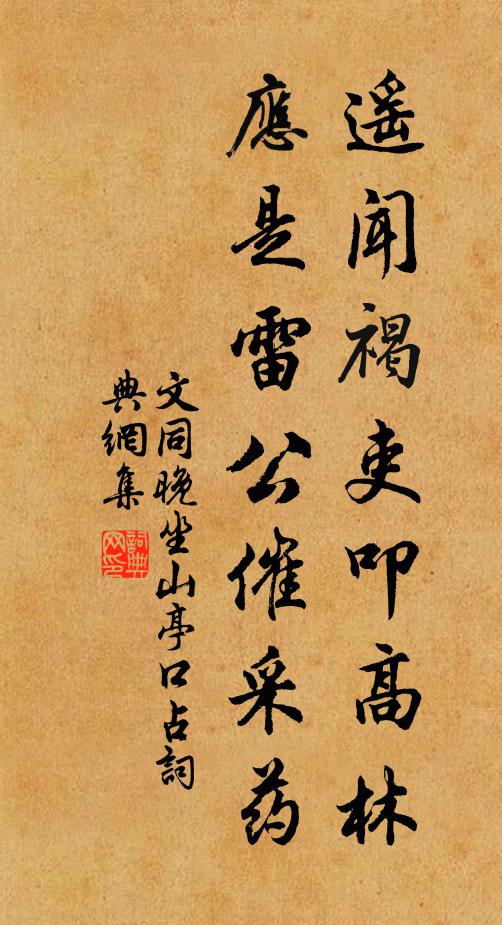 遥聞褐吏叩高林
應是雷公催采药
文同晚坐山亭口占詞
典網集
詞典网印